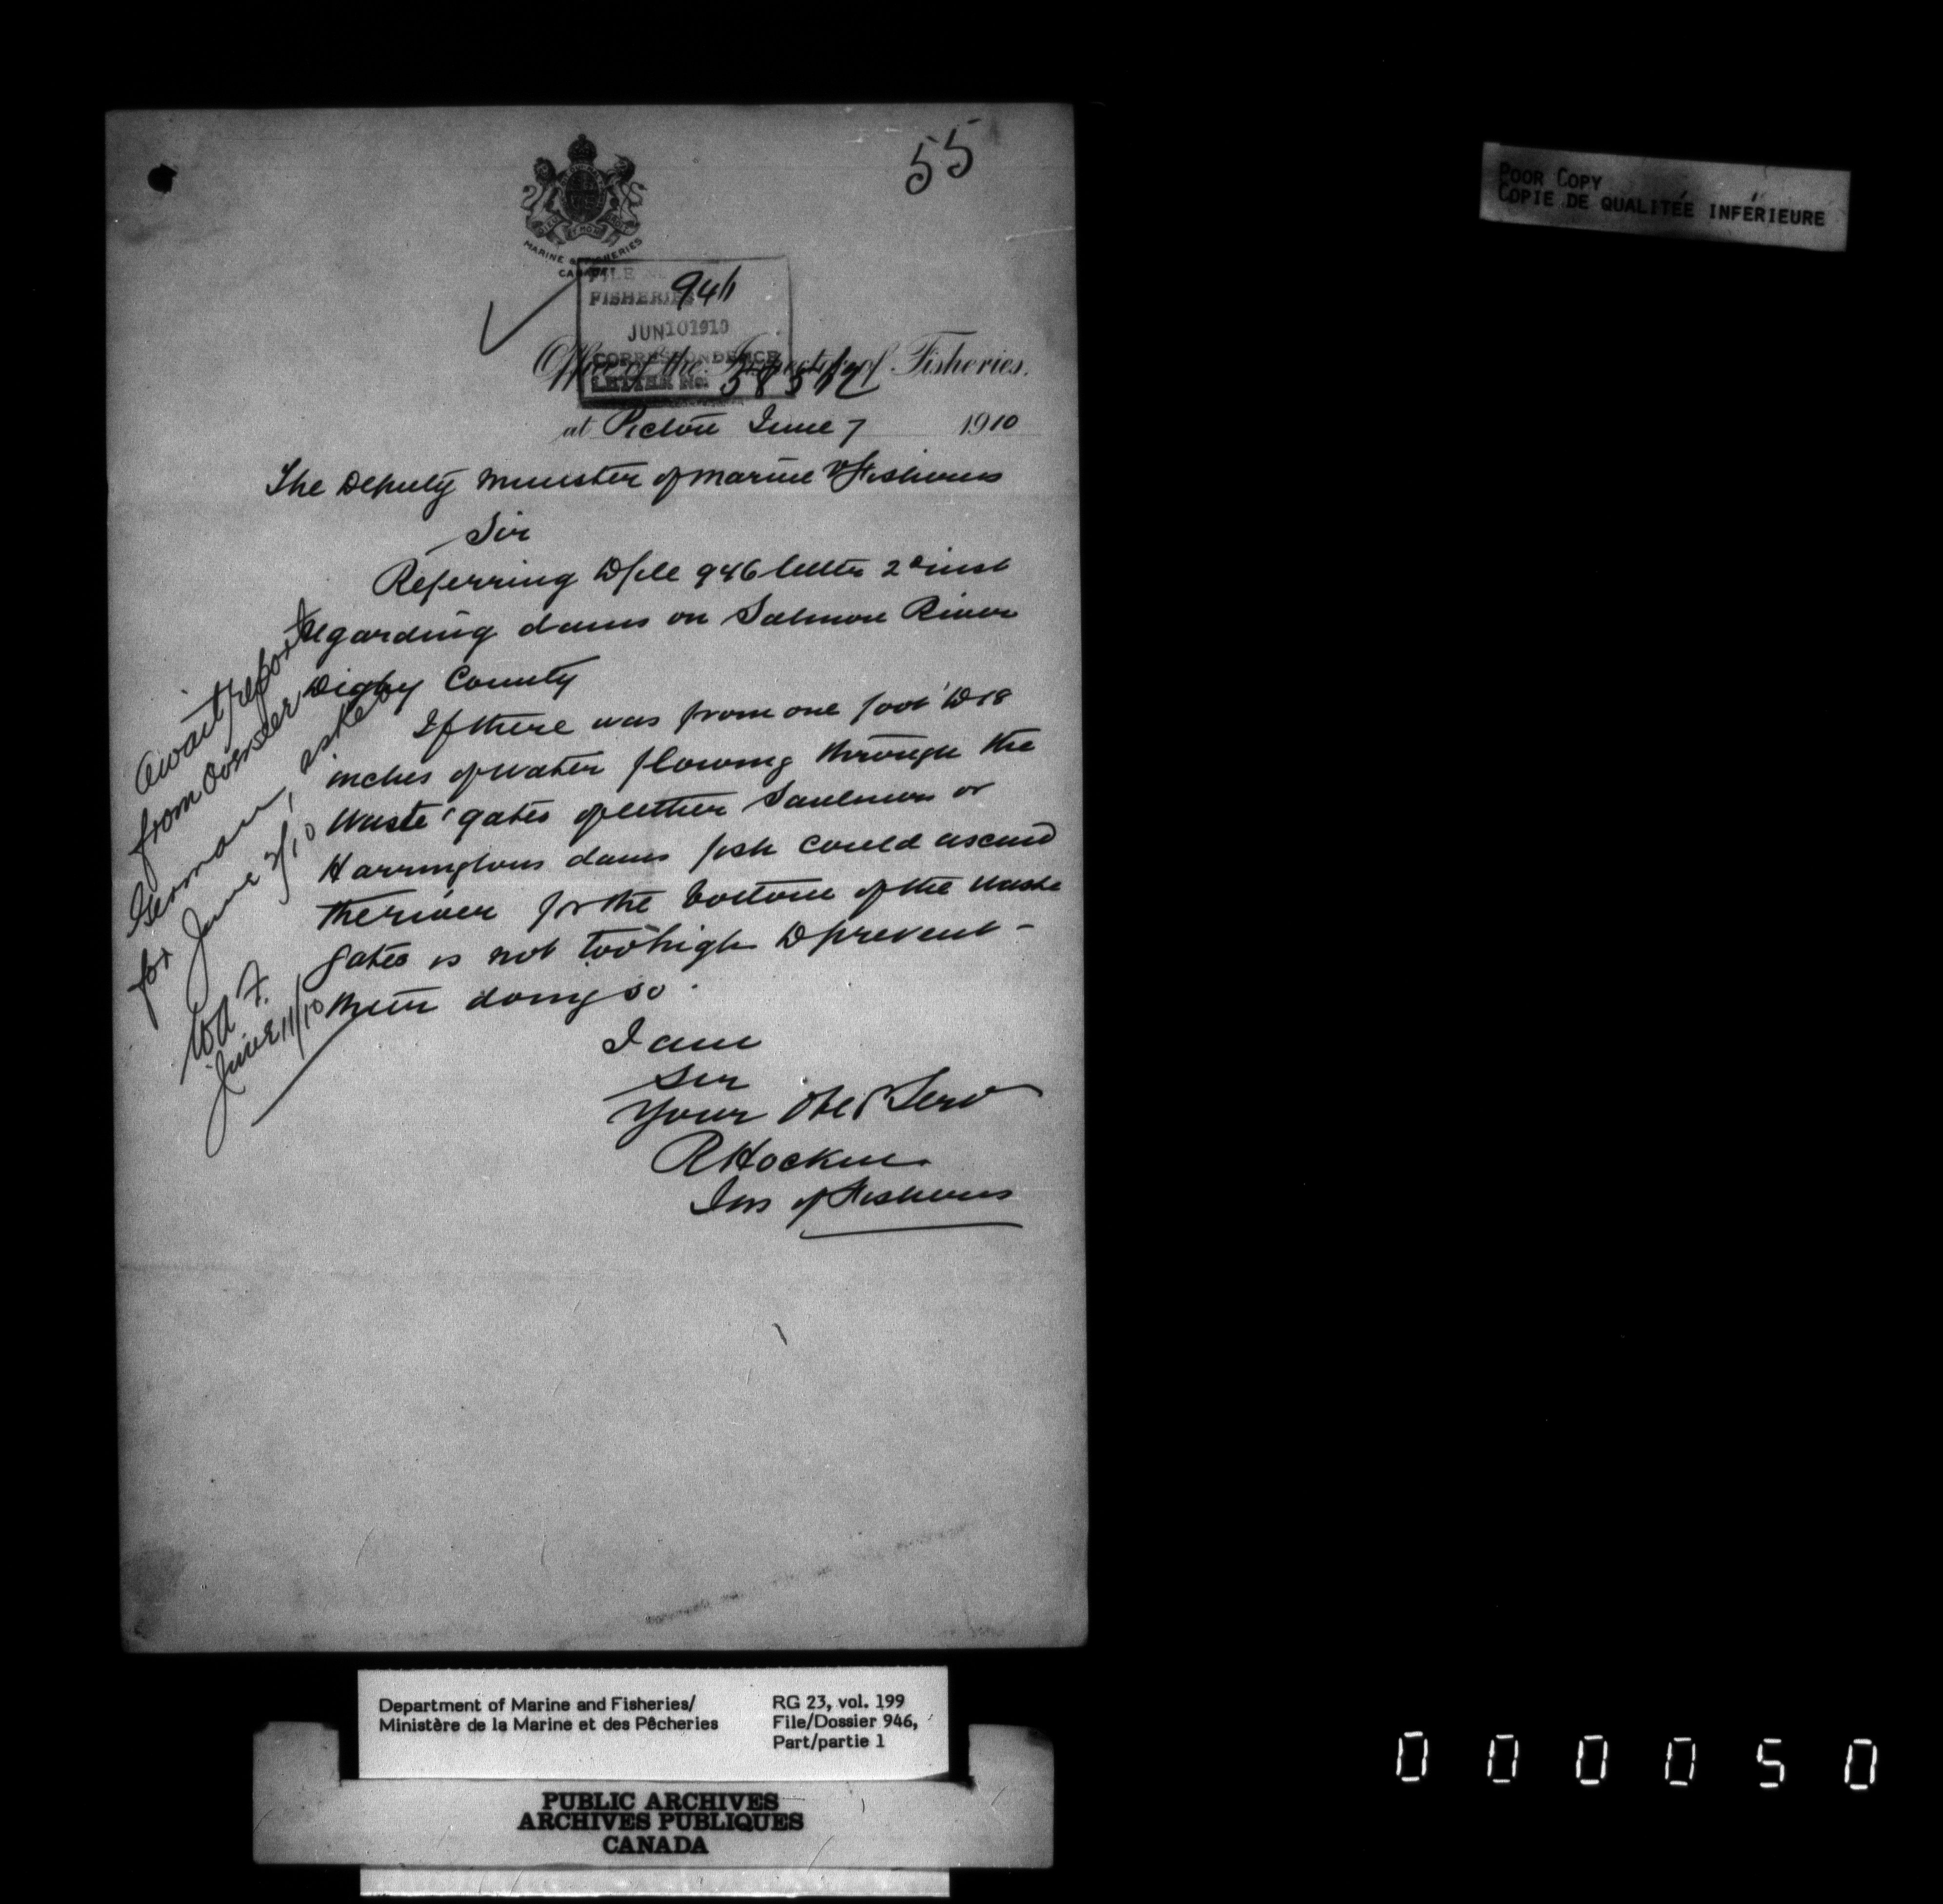 55
POOR COPY
COPIE DE QUALITÉE INFÉRIEURE
MARINE & FISHERIES
CANADA
FILE
FISHERIES 946
JUN 10 1910
CORRESPONDENCE
LETTER No.
Office of the Inspector of Fisheries.
at Pictou June 7 1910
The Deputy Minister of Marine & Fisheries
Sir
Referring to file 946 letter 2d inst
regarding dams on Salmon River
Digby County
If there was from one foot to 18
inches of water flowing through the
waste gates of either or
Harringtons dams fish could ascend
the river for the bottom of the waste
gates is not too high to prevent
them doing so.
I am
Sir
Your Obed Serv
R Hockin
Ins of Fisheries
Await report
from Overseer
German, asked
for June 2/10
June 11/10
Department of Marine and Fisheries/
Ministère de la Marine et des Pêcheries
RG 23, vol. 199
File/Dossier 946,
Part/partie 1
PUBLIC ARCHIVES
ARCHIVES PUBLIQUES
CANADA
000050